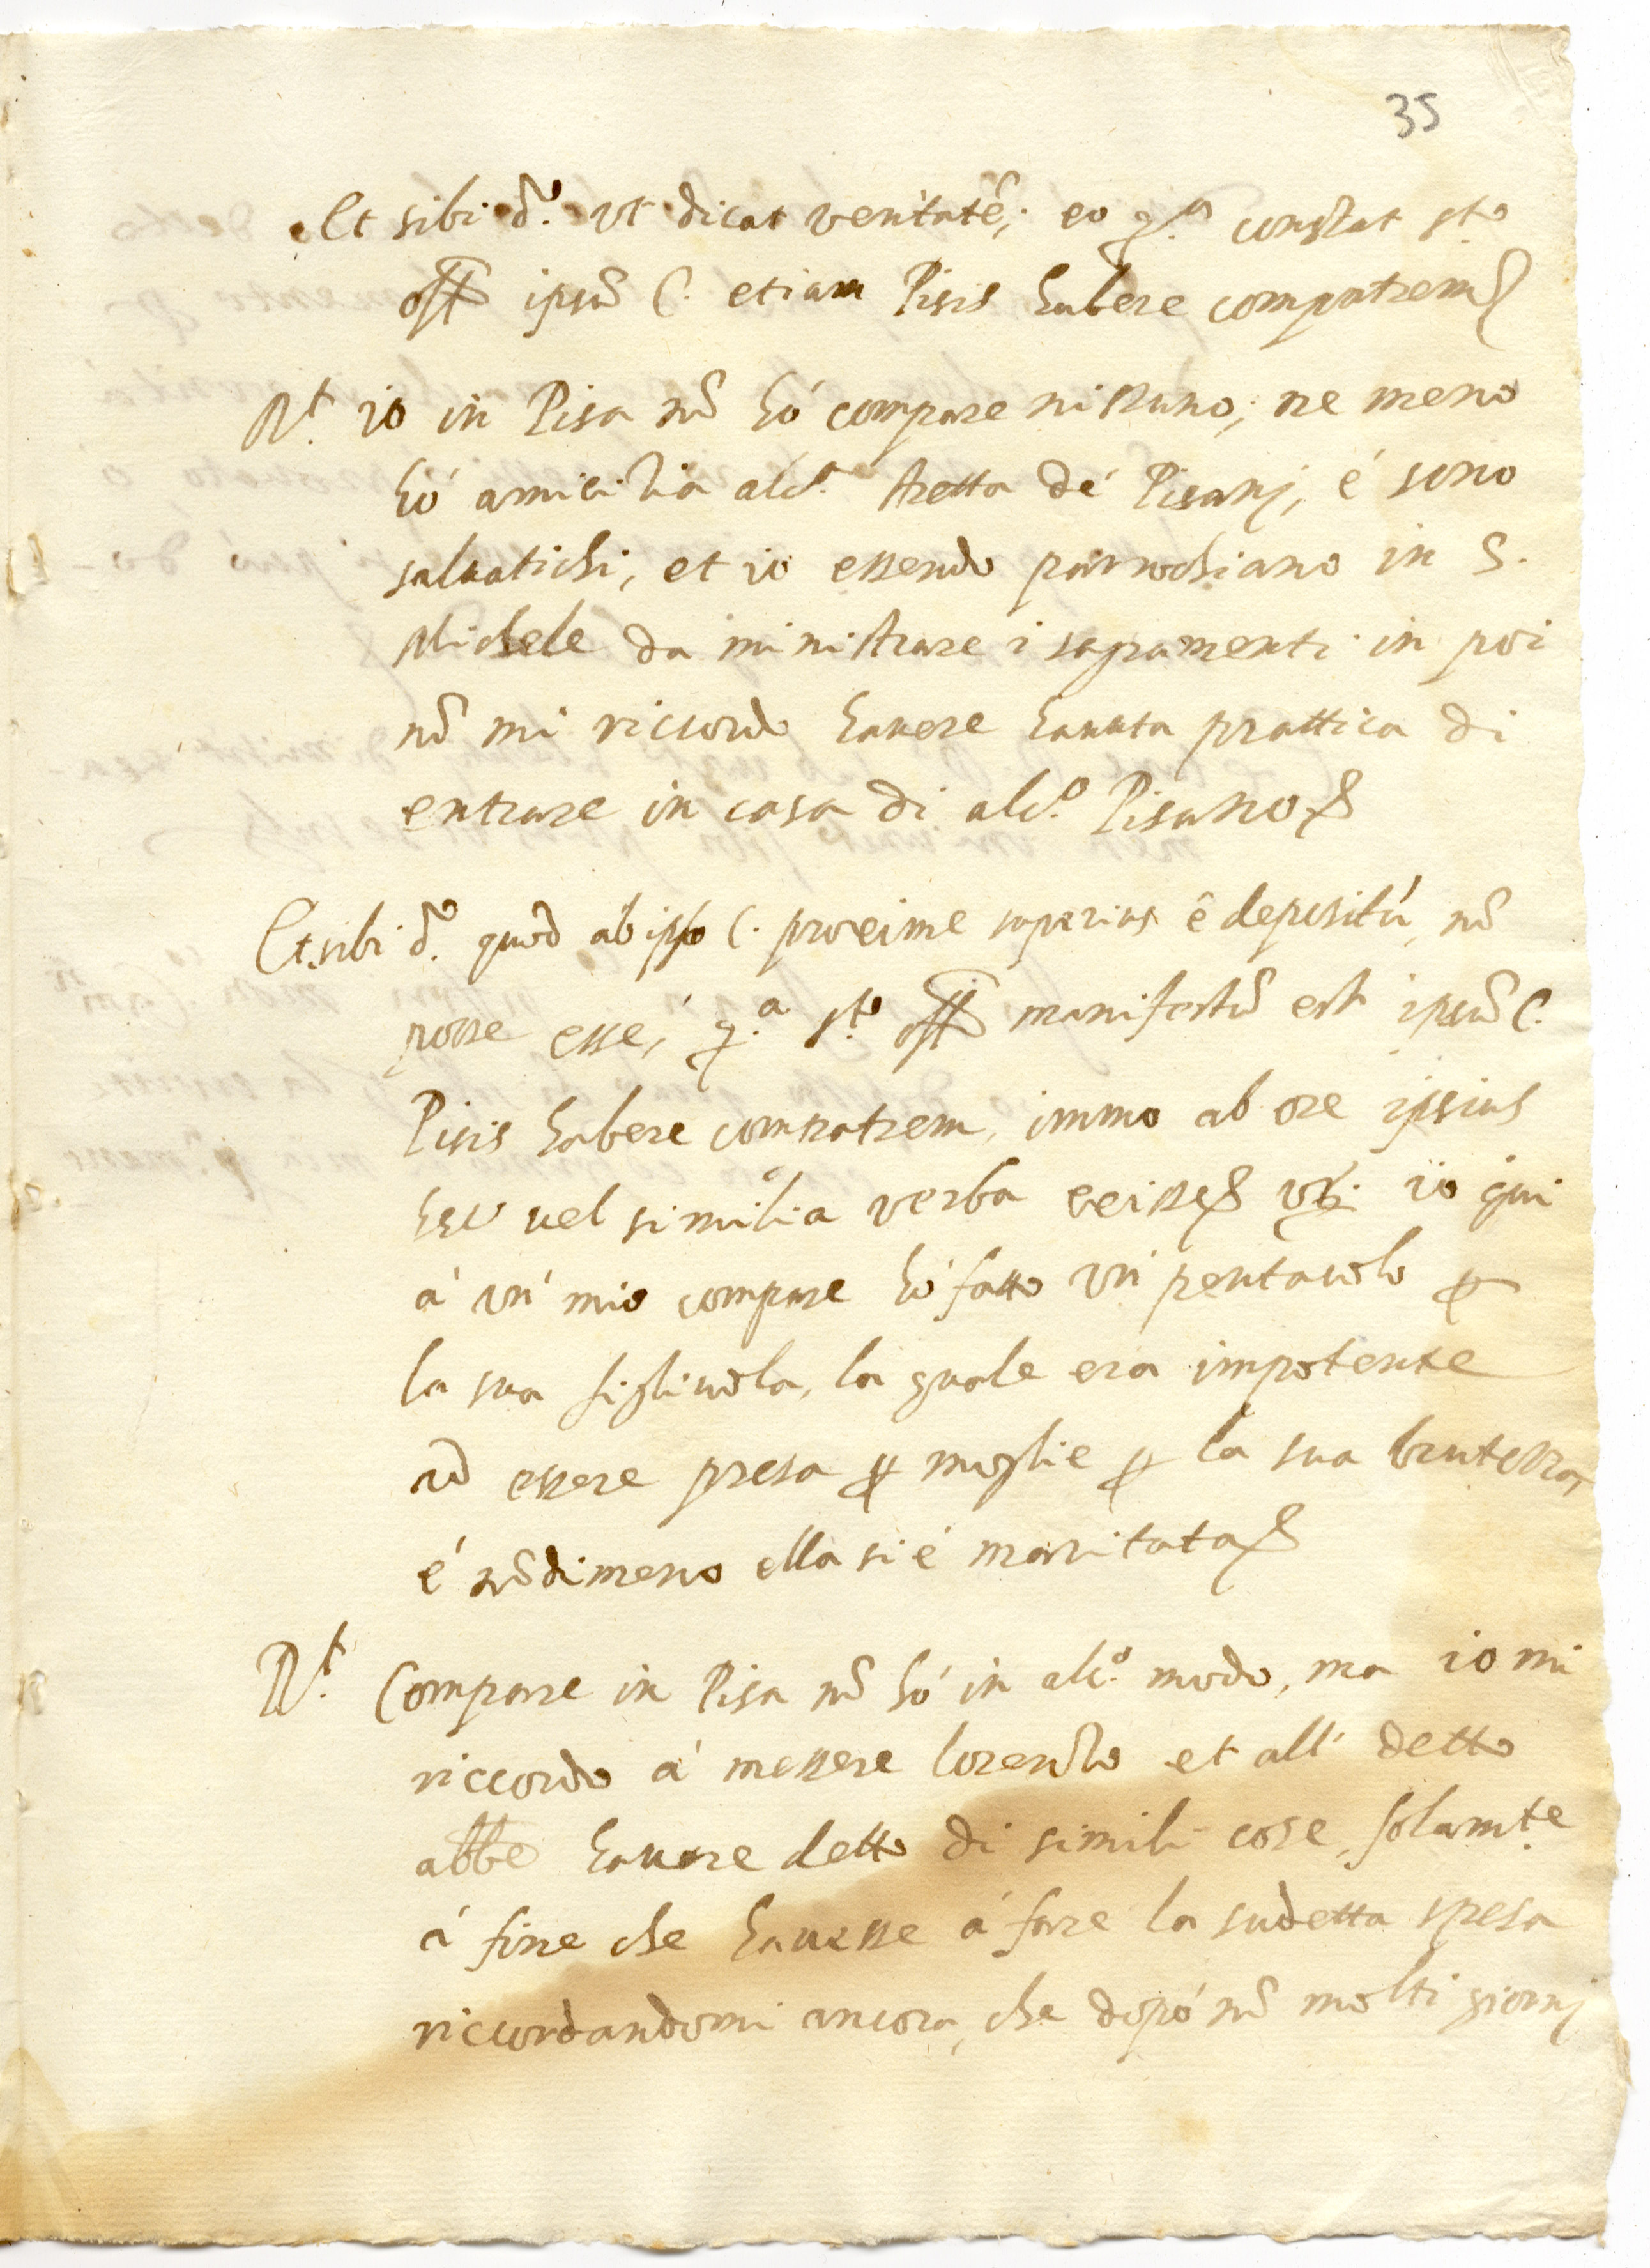 35
Et sibi d.º ut dicat veritatẽ, eo q.ª constat s.to
off.º ipsũ C. etiam Pisis habere compatrem &
R.t io in Pisa nõ hó compare nissuno, ne meno
hó amicitia alc.ª stretta de' Pisanj, é sono
saluatichi, et io essendo parrochiano in S.
Michele da ministrare i sagramenti in poi
nõ mi riccordo hauere hauuta prattica di
entrare in casa di alc.º Pisano &
Et sibi d.º quod ab ipso C. proxime superius ê depositũ, nõ
posse esse, q.ª s.to off.º manifestũ est ipsũ C.
Pisis habere compatrem, immo ab ore ipsius
hec uel similia verba exisse & vz. io qui
á un' mio compare hó fatto un' pentacolo ꝑ
la sua figliuola, la quale era impotente
ad essere presa ꝑ moglie ꝑ la sua brutezza,
é nõdimeno ella si é marritata &
R.t Compare in Pisa nõ hó in alc.º modo, ma io mi
riccordo á messere Lorenzo et all' detto
abbe hauere detto di simili cose, solamt.e
á fine che hauesse á fare la sudetta spesa
riccordandomi ancora, che dopó nõ molti giornj